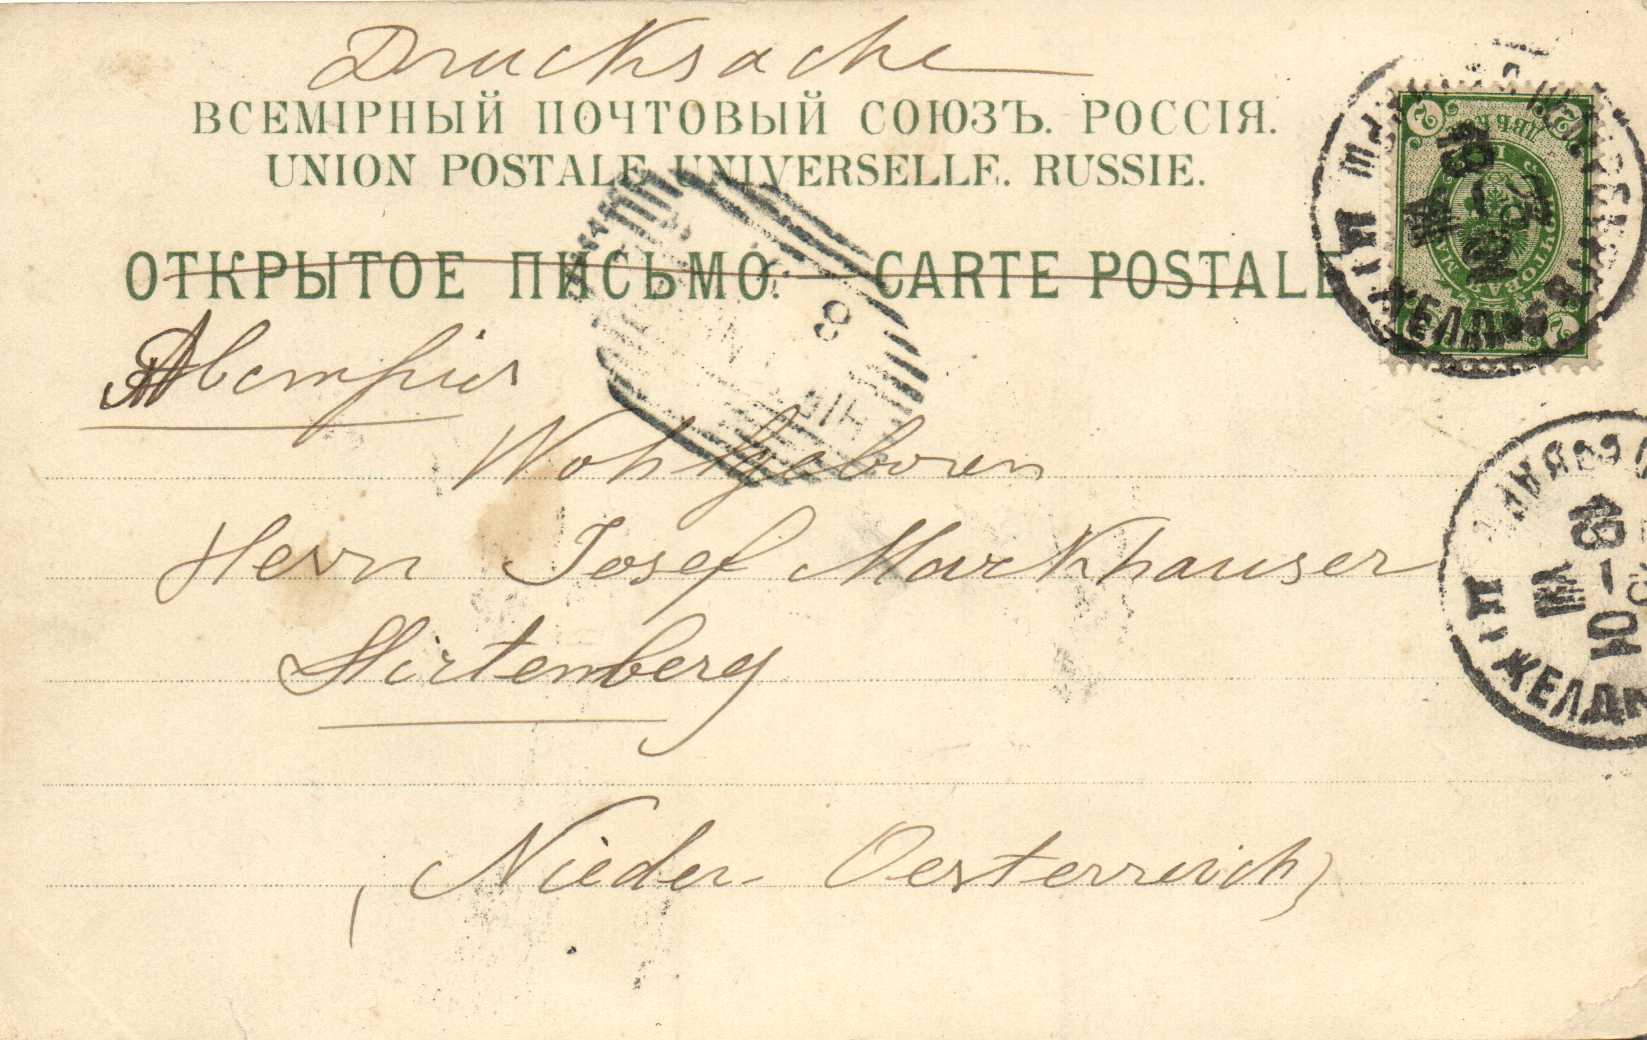 Drucksache
ВСЕМIРНЫЙ ПОЧТОВЫЙ СОЮЗЪ. РОССIЯ.
UNION POSTALE UNIVERSELLE. RUSSIE.
ОТКРЫТОЕ ПИСЬМО. CARTE POSTALE
Австрія
Wohlgeboren
Herrn Josef Markhauser
Hirtenberg
(Nieder Oesterreich)
ЖЕЛ
VIII
ЖЕЛ